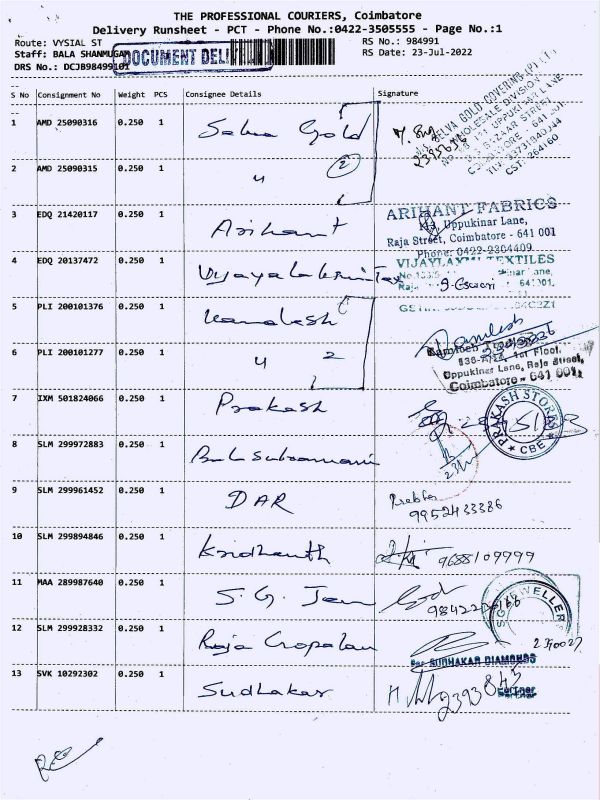 THE PROFESSIONAL COURIERS, Coimbatore
Delivery Runsheet - PCT - Phone No.:0422-3505555 - Page No.:1
Route: VYSIAL ST RS No.: 984991
Staff: BALA SHANMUGAM RS Date: 23-Jul-2022
DOCUMENT
DRS No.: DCJB98499101
S No Consignment No Weight PCS Consignee Details Signature
1 AMD 25090316 0.250 1 Selva Gold
SELVA GOLD COVERING (P)
WHOLESALE DIVISION
UPPUKINAR LANE
BAZAAR STREET
COIMBATORE - 641 001
CST: 264160
2 AMD 25090315 0.250 1 " 2
3 EDQ 21420117 0.250 1 Arihant
ARIHANT FABRICS
Uppukinar Lane,
Raja Street, Coimbatore - 641 001
Phone: 0422-2304409
4 EDQ 20137472 0.250 1 Vijayalakshmi Tex
VIJAYLAXMI TEXTILES
641001.
5 PLI 200101376 0.250 1 Kamalesh
Kamlesh
6 PLI 200101277 0.250 1 " 2
1st Floor,
Uppukinar Lane, Raja Street,
Coimbatore - 641 001.
7 IXM 501824066 0.250 1 Prakash
PRAKASH STORES
CBE
8 SLM 299972883 0.250 1 Balasubramani
9 SLM 299961452 0.250 1 DAR
Prabha
9952433386
10 SLM 299894846 0.250 1 Kridhanth
9688109999
11 MAA 289987640 0.250 1 S. G. Jew
JEWELLERS
12 SLM 299928332 0.250 1 Raja Gopalan
For SUDHAKAR DIAMONDS
13 SVK 10292302 0.250 1 Sudhakar
2393845
Partner